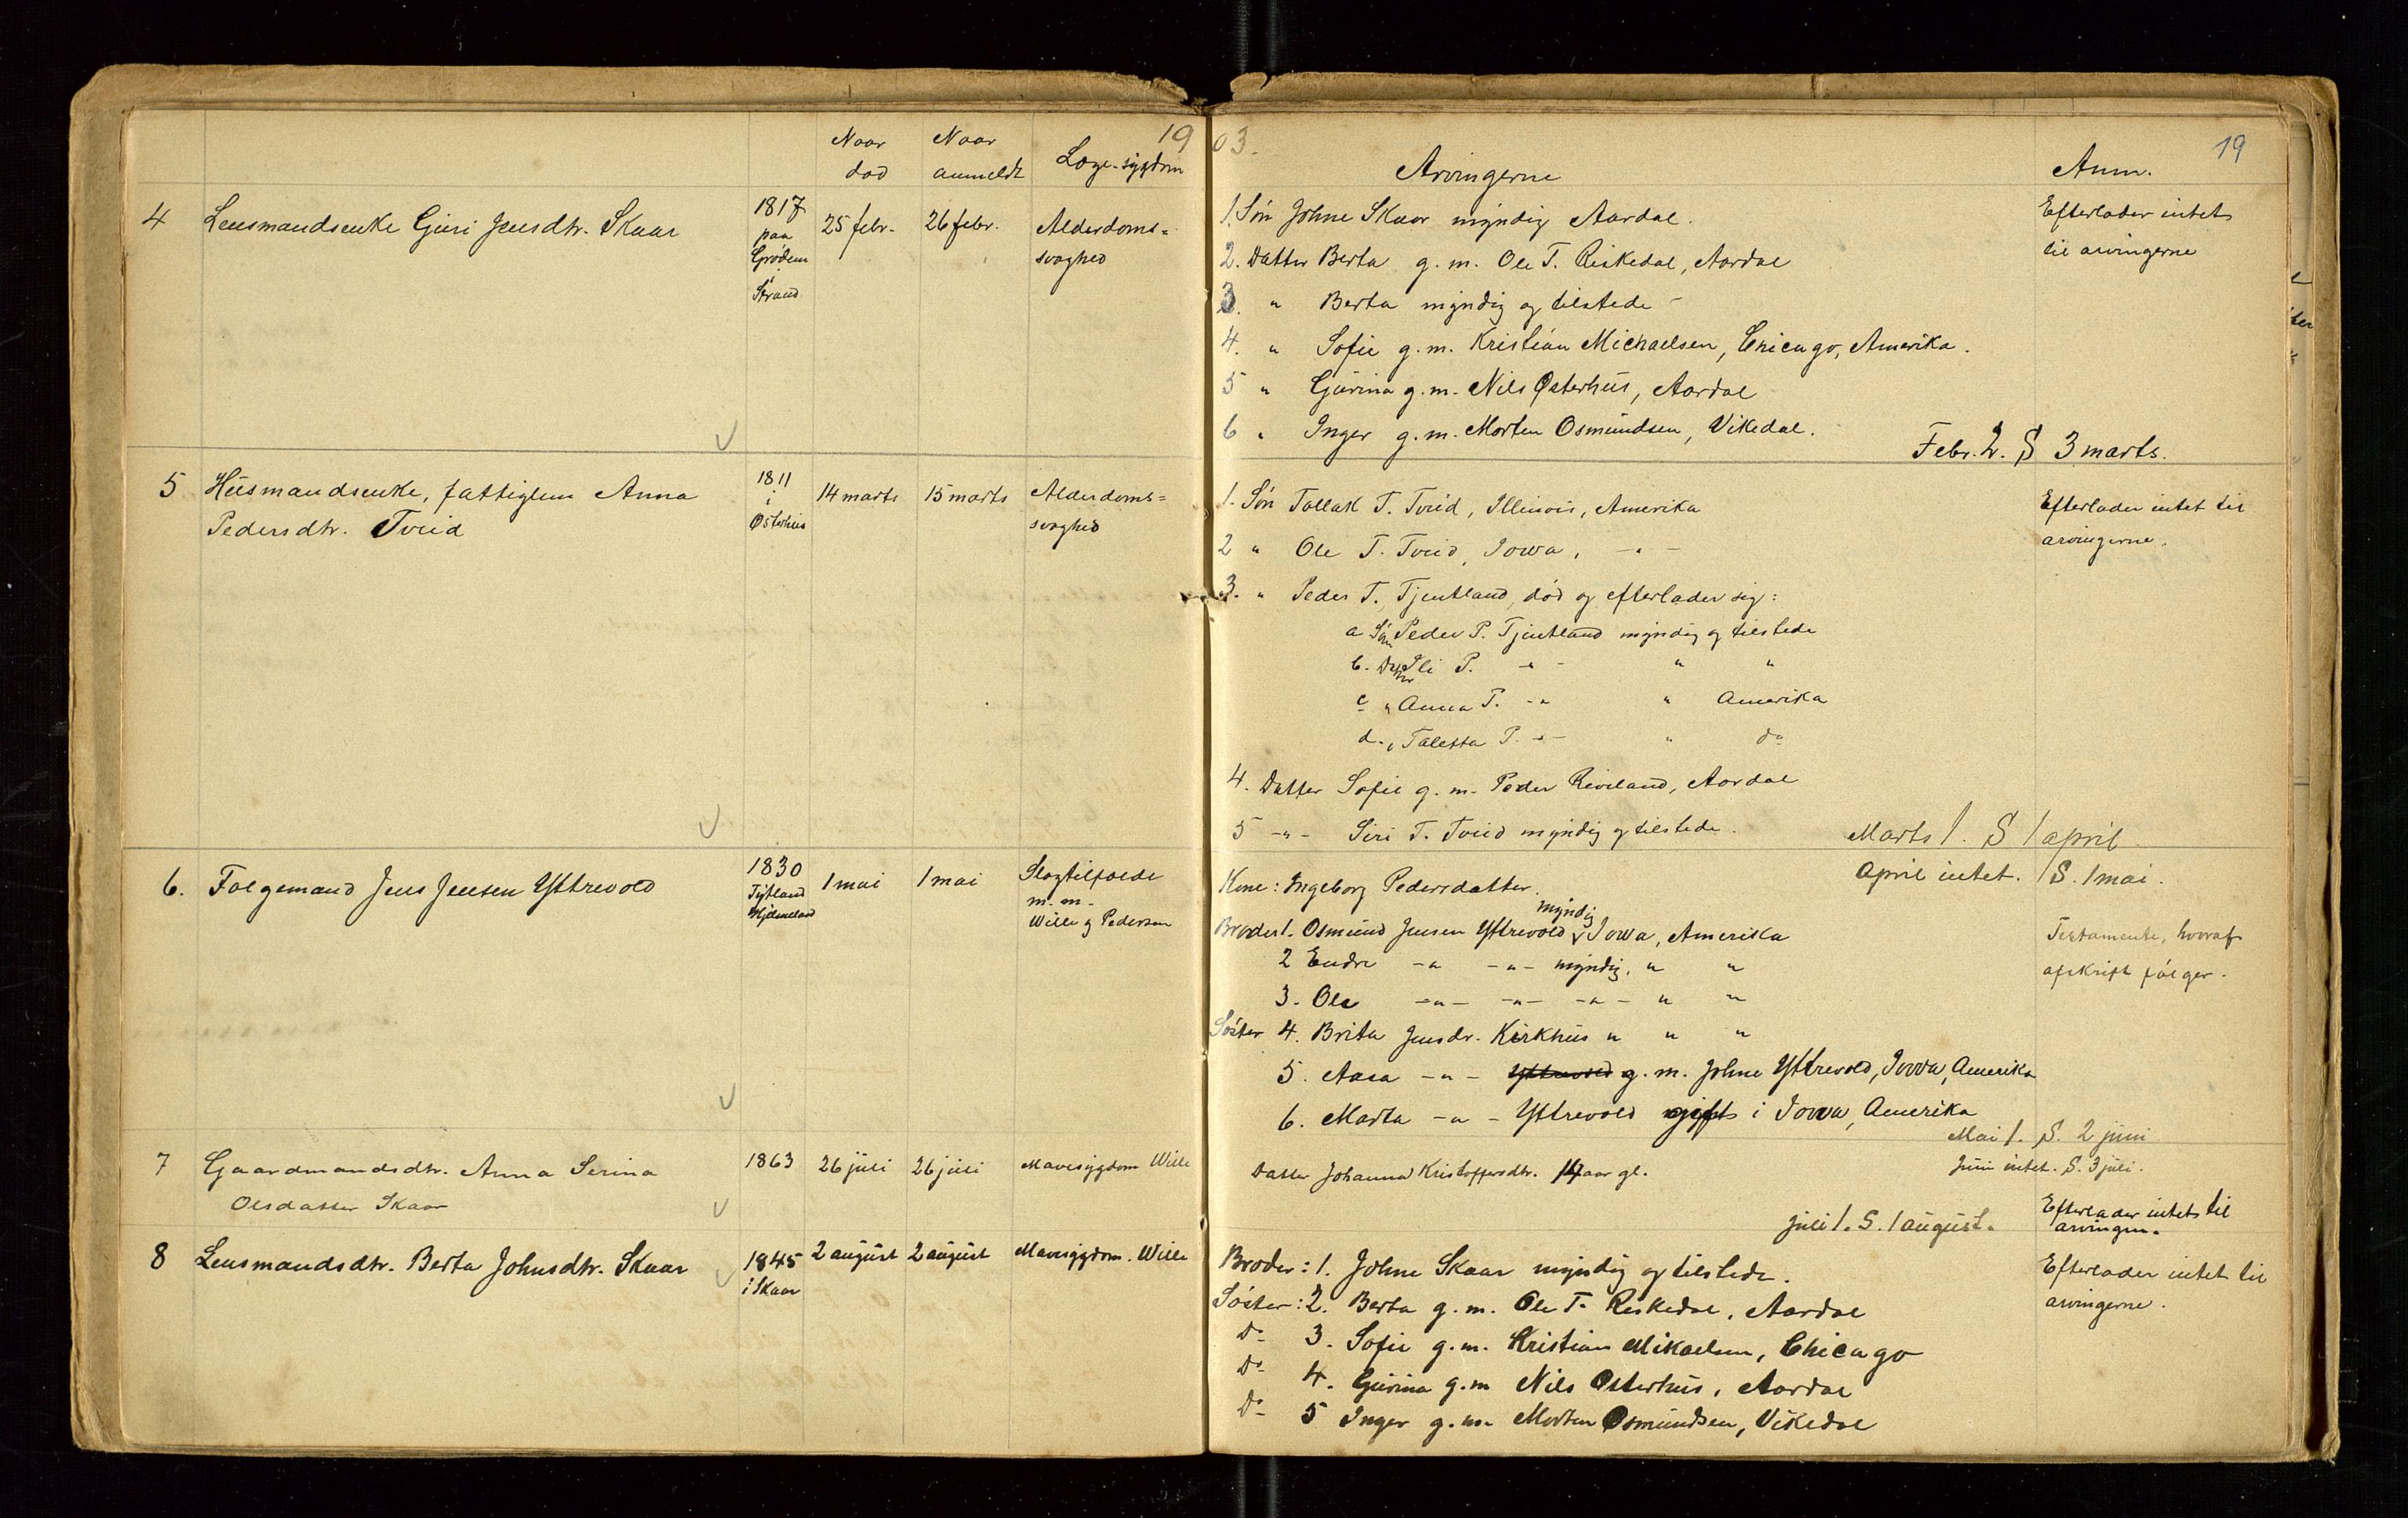 Naar død
Naar anmeldt
Læge-sygdom
19
03.
Arvingerne
Anm.
19
4
Lensmandsenke Guri Jensdtr. Skaar
1817
paa
Grødem
i
Strand
25 febr.
26 febr.
Alderdoms=
svaghed
1. Søn Johne Skaar myndig Aardal.
2. Datter Berta g. m. Ole T. Riskedal, Aardal
3. " Berta myndig og tilstede -
4. " Sofie g. m. Kristian Michaelsen, Chicago, Amerika.
5 " Gurina g. m. Nils Østerhus, Aardal
6 " Inger g. m. Morten Osmundsen, Vikedal.
Efterlader intet
til arvingerne
Febr. 2. S 3 marts.
5
Husmandsenke, fattiglem Anna
Pedersdtr. Tveid
1811
i
Østerhus
14 marts
15 marts
Alderdoms=
svaghed
1. Søn Tallak T. Tveid, Illinois, Amerika
2 " Ole T. Tveid, Iowa, -"-
3. " Peder T. Tjentland, død og efterlader sig:
a Søn Peder P. Tjentland myndig og tilstede
b. Datter Eli P. -"- " "
c " Anna P. -"- " Amerika
d. " Taletta P. -"- " do
4. Datter Sofie g. m. Peder Riveland, Aardal
5 -"- Siri T. Tveid myndig og tilstede.
Efterlader intet til
arvingerne.
Marts 1. S 1 april.
April intet. S. 1 mai.
6.
Folgemand Jens Jensen Yttrevold
1830
Tytland
Hjelmeland
1 mai
1 mai
Slagtilfælde
m. m.
Wille og Pedersen
Kone: Ingeborg Pedersdatter.
Broder 1. Osmund Jensen Yttrevold myndig Iowa, Amerika
2 Endre -"- -"- myndig, " "
3. Ole -"- -"- -"- " "
Søster 4. Brita Jensdr. Kirkhus " " "
5. Aasa -"- Yttrevold g. m. Johne Yttrevold, Iowa, Amerika
6. Marta -"- Yttrevold gift i Iowa, Amerika
Testamente, hvoraf
afskrift følger.
Mai 1. S. 2 juni
Juni intet. S. 3 juli.
7
Gaardmandsdtr. Anna Serina
Olsdatter Skaar
1863
26 juli
26 juli
Mavesygdom Wille
Datter Johanna Kristoffersdtr. 14 aar gl.
juli 1. S. 1 august.
Efterlader intet til
arvingen.
8
Lensmandsdtr. Berta Johnsdtr. Skaar
1845
i Skaar
2 august
2 august
Mavesygdom. Wille
Broder: 1. Johne Skaar myndig og tilstede.
Søster: 2. Berta g. m. Ole T. Riskedal, Aardal
Do 3. Sofie g. m. Kristian Mikaelsen, Chicago
Do 4. Gurina g. m Nils Østerhus, Aardal
Do 5 Inger g. m. Morten Osmundsen, Vikedal
Efterlader intet til
arvingerne.